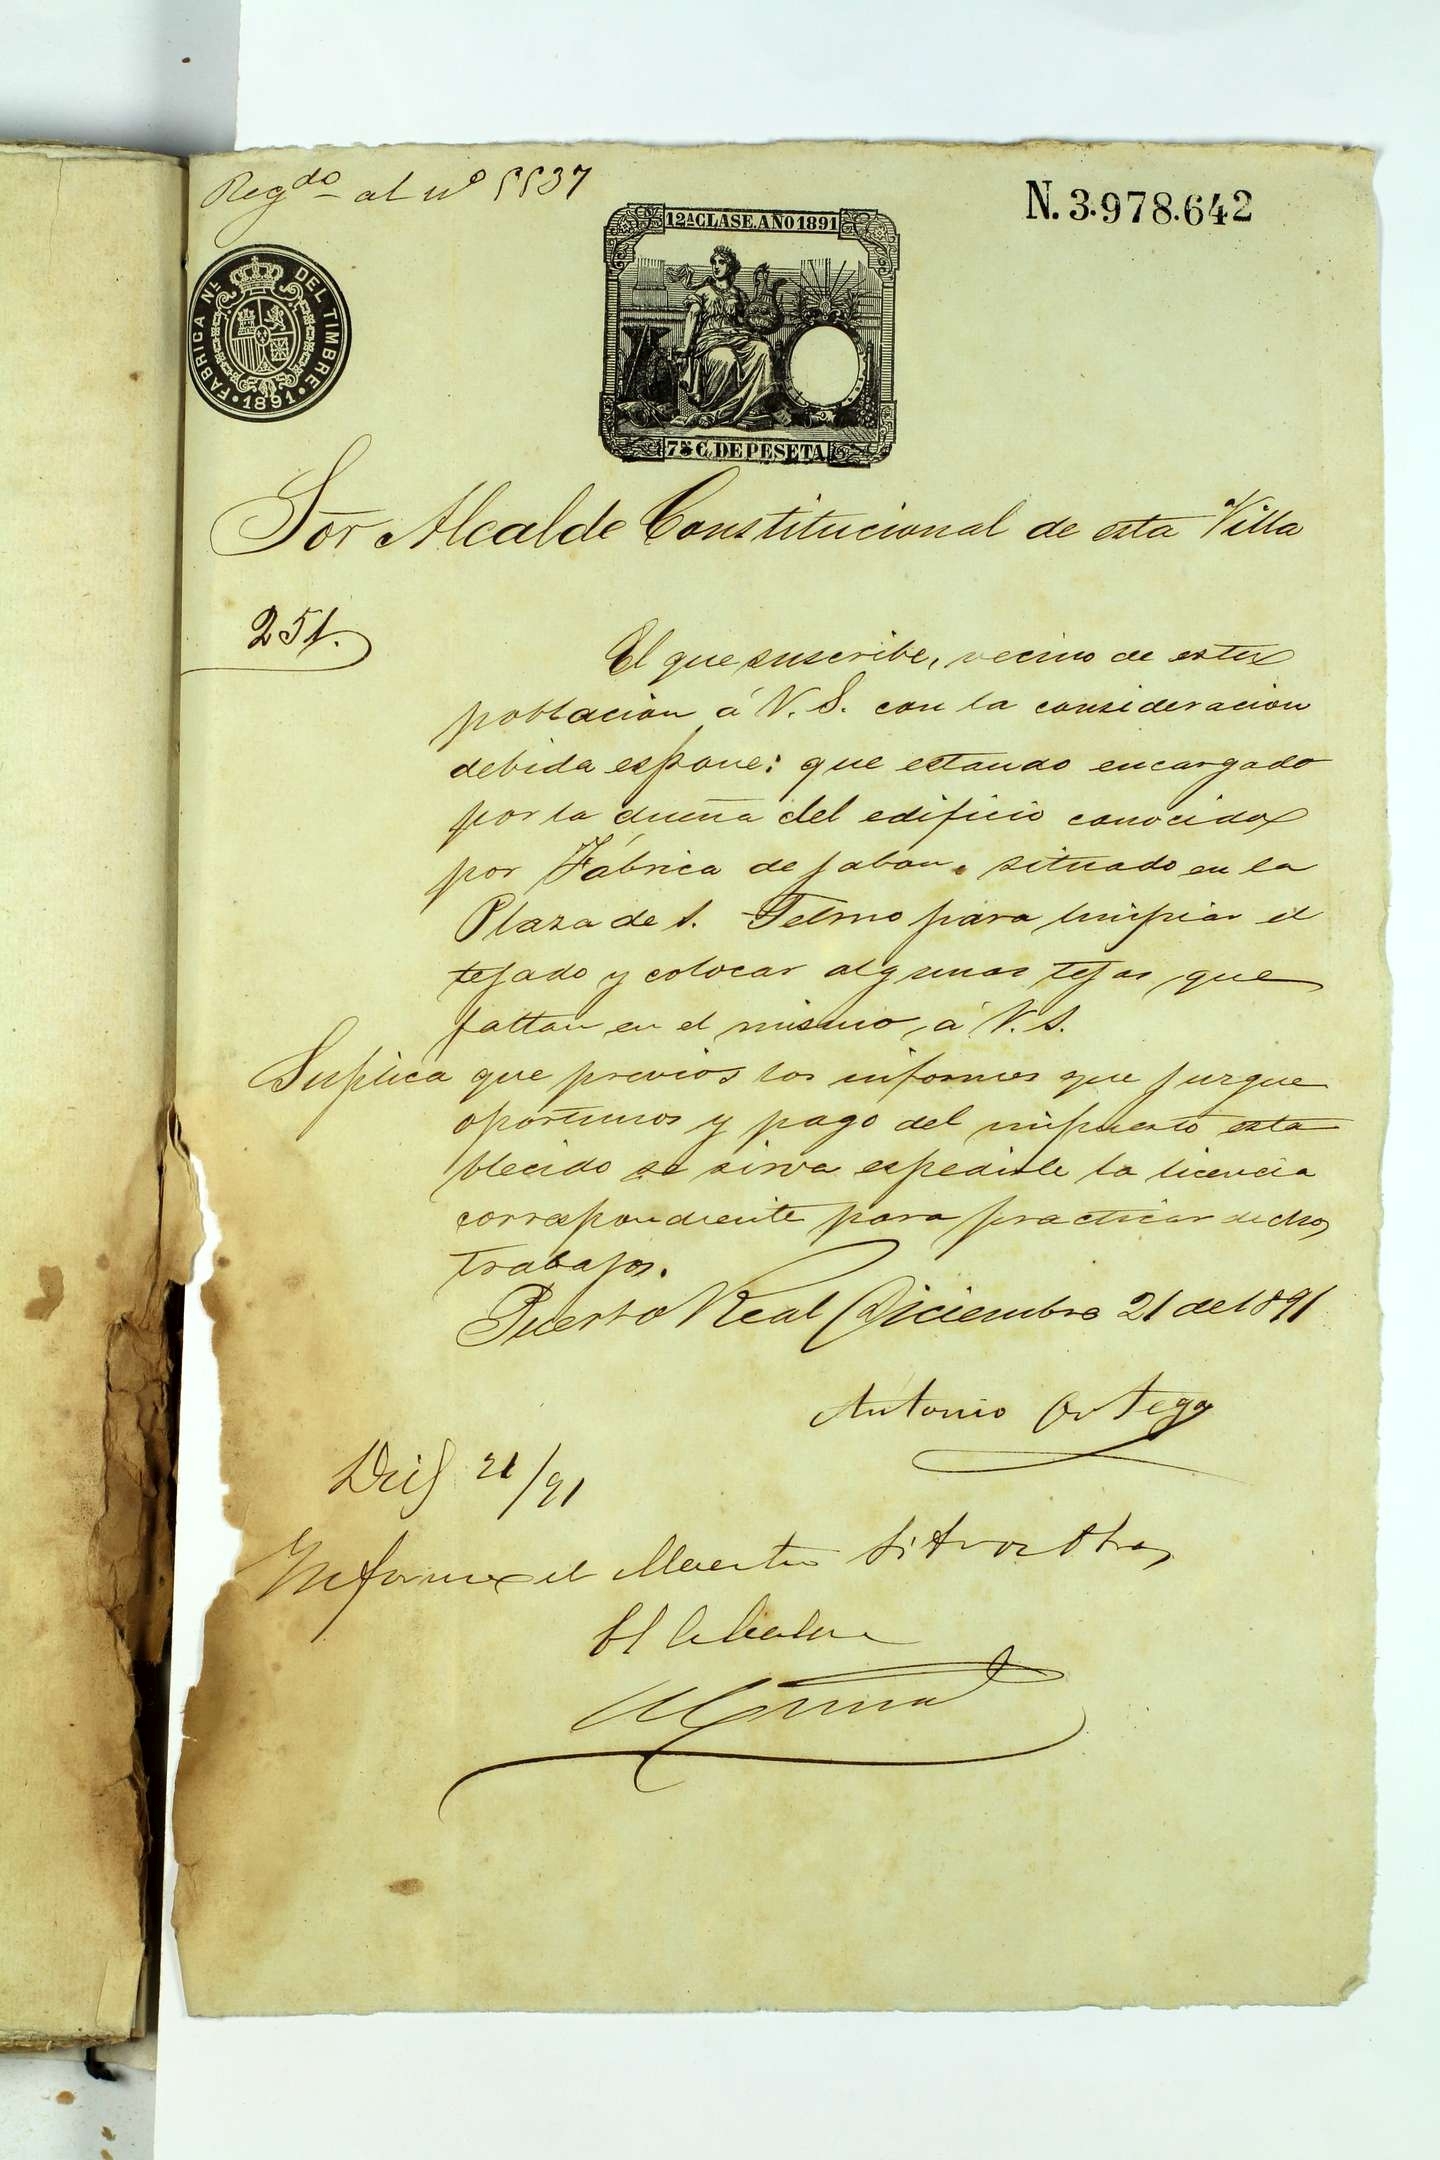 Regdo al nº 5537
N. 3.978.642
12ª CLASE. AÑO 1891
FABRICA NL. DEL TIMBRE · 1891 ·
75 C. DE PESETA
Sor Alcalde Constitucional de esta Villa
251.
El que suscribe, vecino de esta
poblacion á V. S. con la consideracion
debida espone: que estando encargado
por la dueña del edificio conocido
por Fábrica de jabon. situado en la
Plaza de S. Telmo para limpiar el
tejado y colocar algunas tejas que
faltan en el mismo, á V. S.
Suplica que previos los informes que juzgue
oportunos y pago del impuesto esta
blecido se sirva espedirle la licencia
correspondiente para practicar dichos
trabajos.
Puerto Real Diciembre 21 de 1891
Antonio Ortega
21/91
Informe el Maestro
El Alcalde